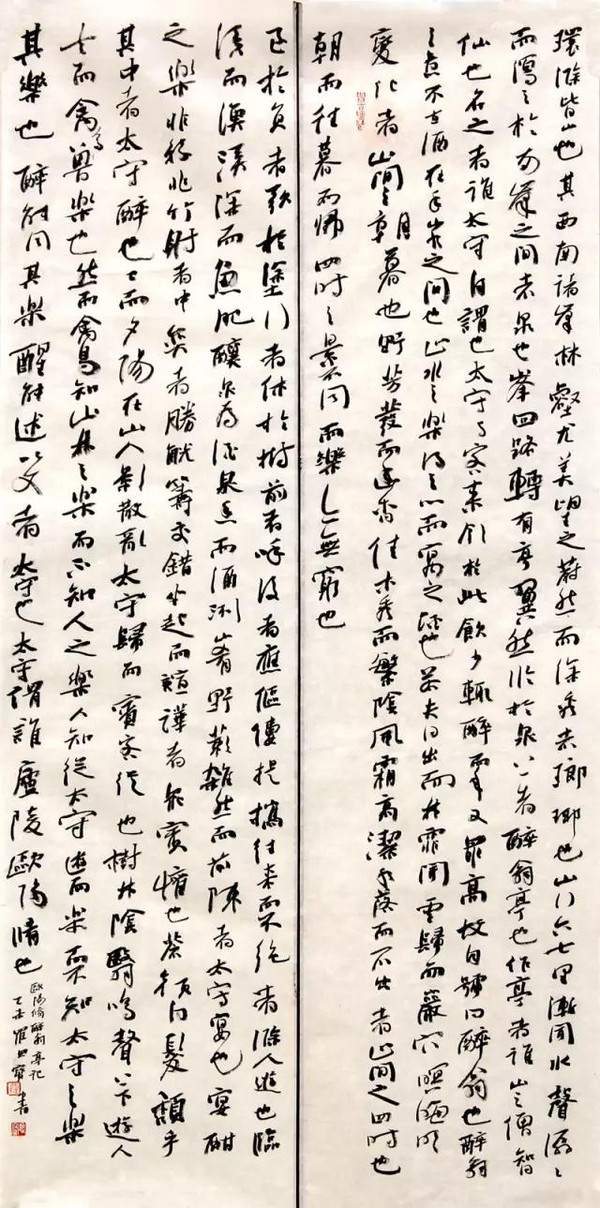 環滁皆山也其西南諸峯林壑尤美望之蔚然而深秀者瑯琊也山行六七里漸聞水聲潺々
而瀉之於兩峯之間者泉也峯回路轉有亭翼然臨於泉上者醉翁亭也作亭者誰山之僧智
仙也名之者誰太守自謂也太守与客来飲於此飲少輒醉而年又最高故自號曰醉翁也醉翁
之意不在酒在乎山水之間也山水之樂得之心而寓之酒也若夫日出而林霏開雲歸而巖穴暝晦明
變化者山間之朝暮也野芳發而幽香佳木秀而繁陰風霜高潔水落而石出者山間之四時也
朝而往暮而歸四時之景不同而樂亦無窮也
至於負者歌於塗行者休於樹前者呼後者應傴僂提攜往来而不绝者滁人遊也臨
溪而漁溪深而魚肥釀泉為酒泉香而酒洌山肴野蔌雜然而前陳者太守宴也宴酣
之樂非絲非竹射者中奕者勝觥籌交錯坐起而諠譁者衆賓懽也蒼顏白髮頹乎
其中者太守醉也已而夕陽在山人影散亂太守歸而賓客從也樹林陰翳鳴聲上下遊人
去而禽鳥獸樂也然而禽鳥知山林之樂而不知人之樂人知從太守遊而樂而不知太守之樂
其樂也醉能同其樂醒能述以文者太守也太守謂誰廬陵歐陽脩也
歐陽脩醉翁亭記
書